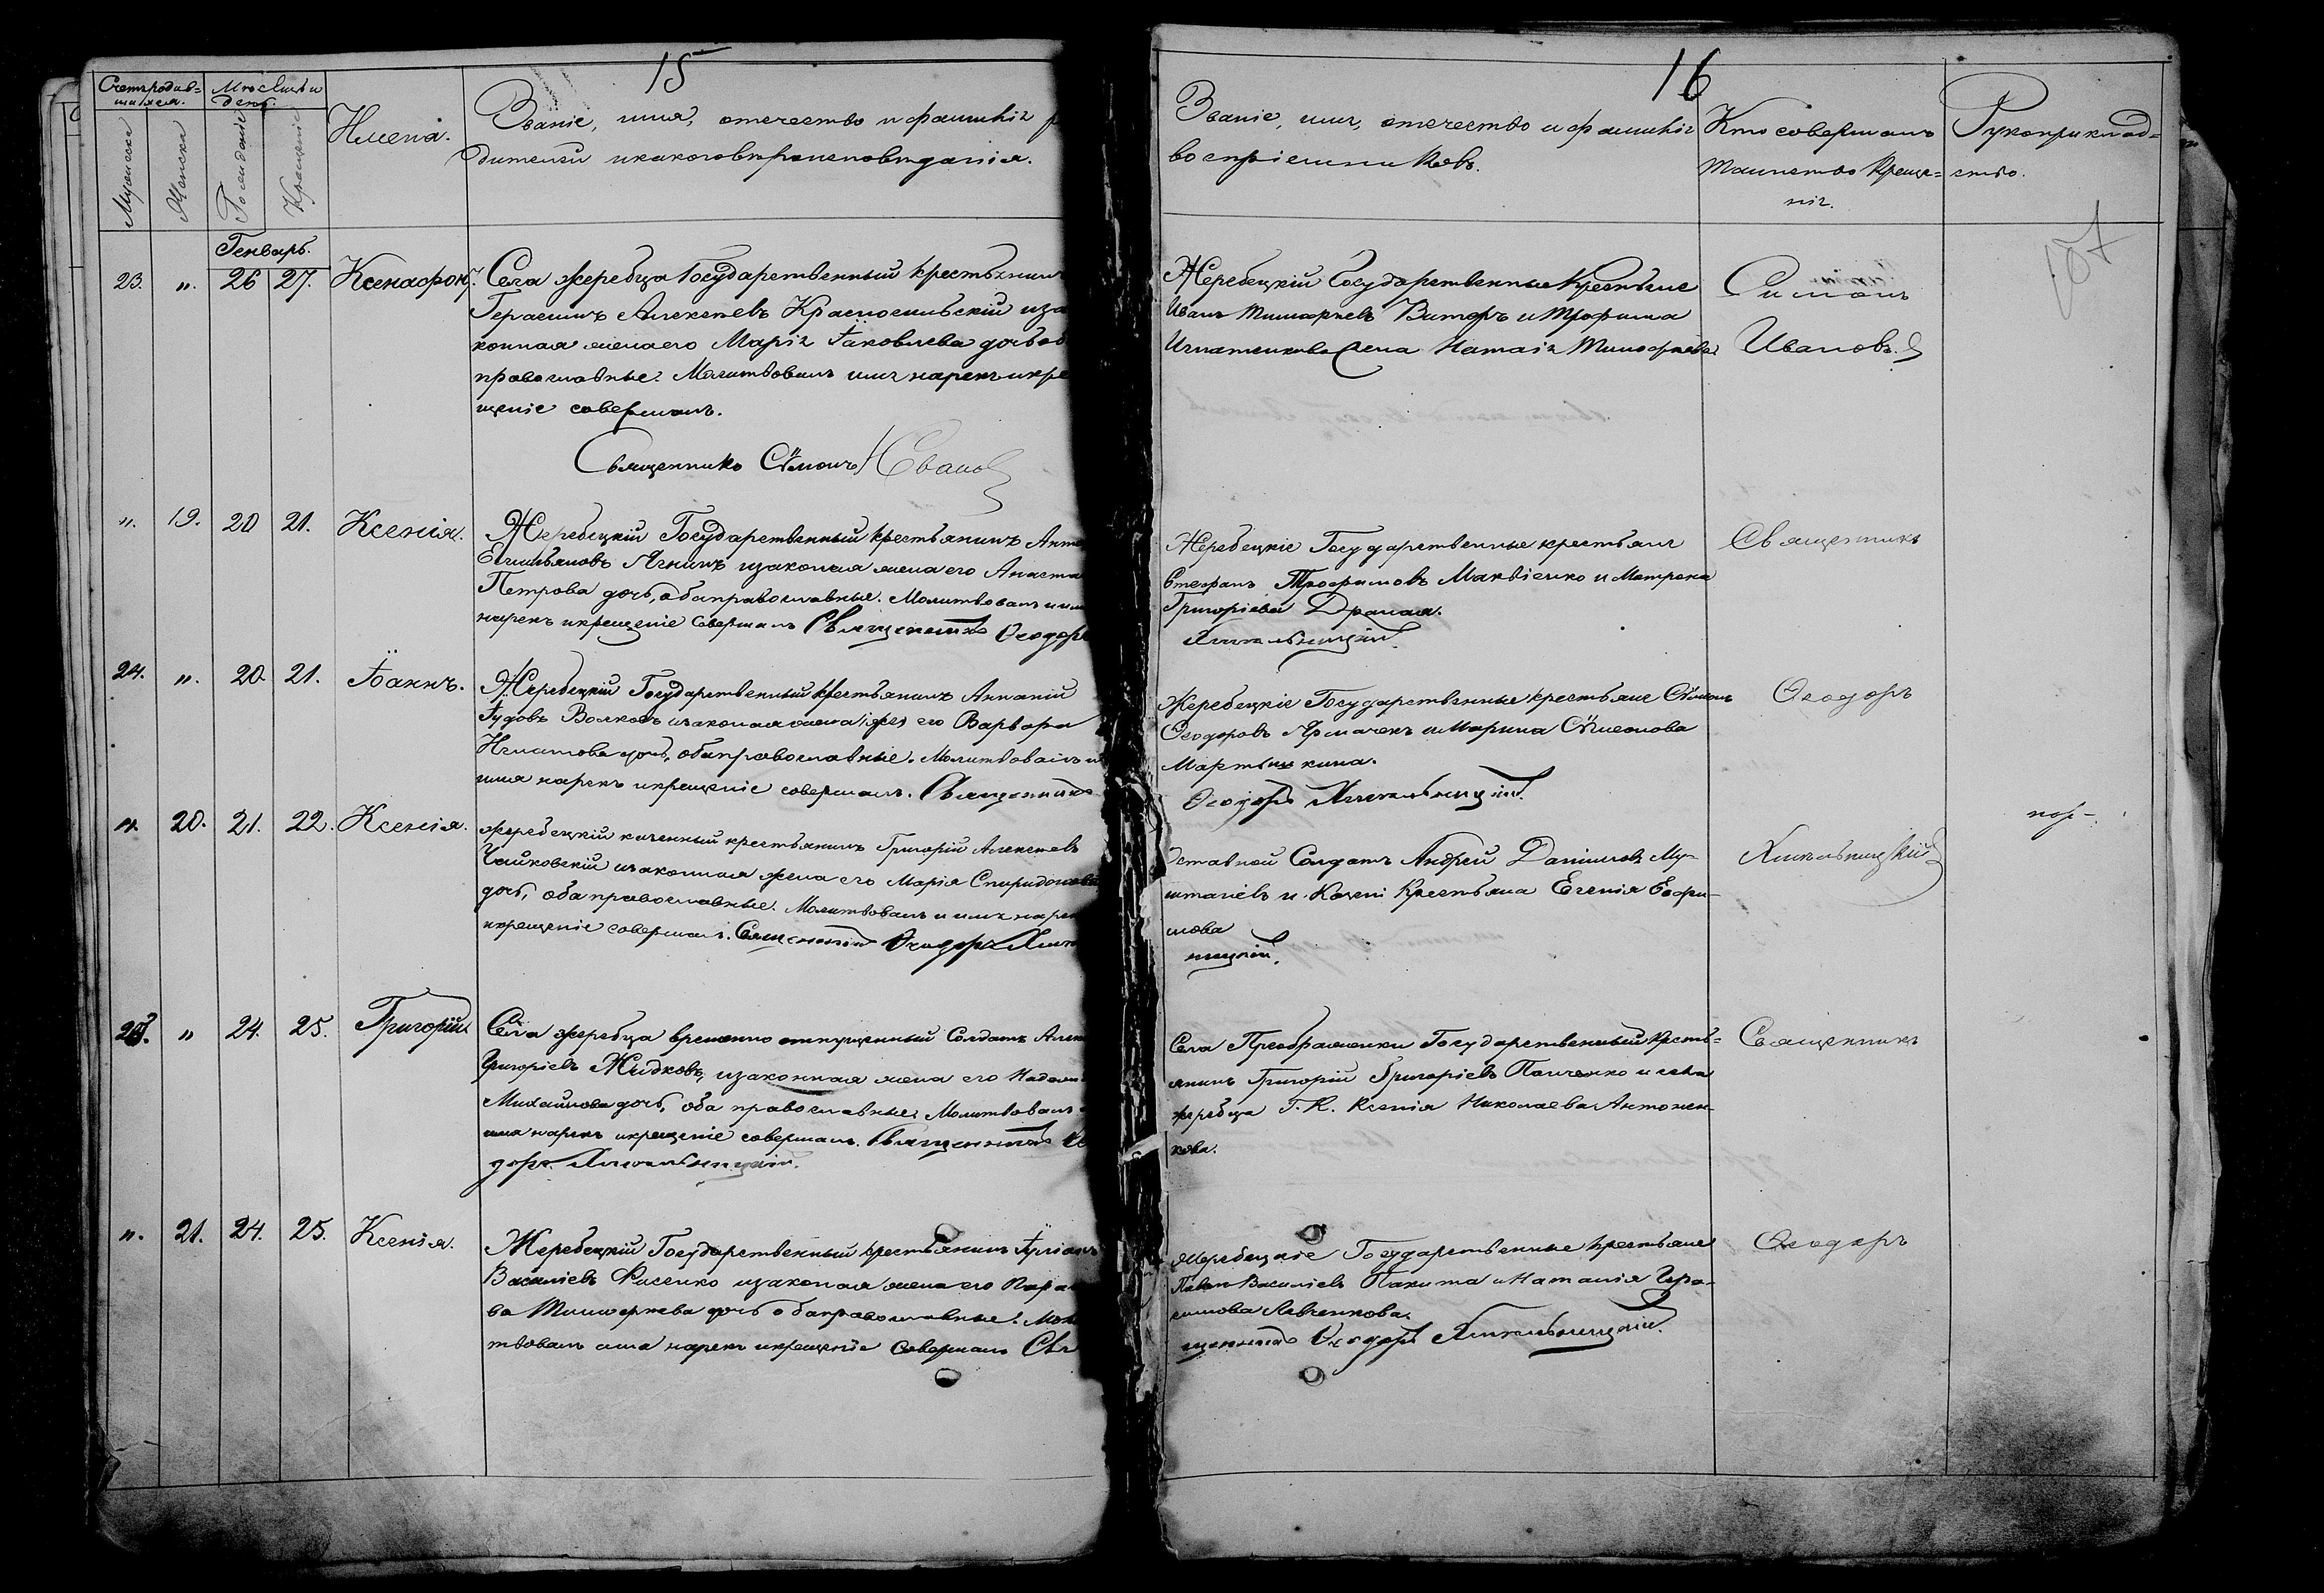 15
Счетъ родив=
шихся.
Мѣсяцъ и
день.
Мужеска
Женска
Рожденіе
Крещеніе
Имена.
Званіе, имя, отечество и фамилія р
дителей и какого вѣроисповѣданія.
Генварь.
23. ". 26 27. Ксенофонт. Села Жеребца Государственный крестьянинъ
Герасимъ Алексѣевъ Красносельскій и за
конная жена его Марія Іаковлева дочь об
православные. Молитвовалъ имя нарекъ и кре
щеніе совершалъ.
Священникъ Сѵмонъ Иванов
". 19. 20 21. Ксенія. Жеребецкій Государственный крестьянинъ Анто
Емильяновъ Ягнинъ и законая жена его Анаста
Петрова дочь, оба православные. Молитвовалъ и им
нарекъ и крещеніе совершалъ Священникъ Ѳеодор
24. ". 20. 21. Іоаннъ. Жеребецкій Государственный крестьянинъ Ананій
Іудовъ Волковъ и законая жена его Варвара
Игнатова дочь, оба православные. Молитвовалъ и
имя нарекъ и крещеніе совершалъ. Священникъ
". 20. 21. 22. Ксенія. Жеребецкій казенный крестьянинъ Григорій Алексѣевъ
Чайковскій и законная жена его Марія Спиридонова
дочь, оба православные. Молитвовалъ и имя нарек
и крещеніе совершалъ. Священникъ Ѳеодоръ Хмел
25. " 24. 25. Григорій Села Жеребца временно отпущенный Солдатъ Алек
Григоріевъ Жидковъ, и законная жена его Надеж
Михайлова дочь, оба православные. Молитвовалъ
имя нарекъ и крещеніе совершалъ. Священникъ Ѳе
доръ Хмельницкій.
". 21. 24. 25. Ксенія. Жеребецкій Государственный крестьянинъ Іуліанъ
Василіевъ Фисенко и законая жена его Парас
ва Тимоѳеева дочь оба православные. Моли
твовалъ имя нарекъ и крещеніе совершалъ Свя
16
Званіе, имя, отечество и фамилія
воспріемниковъ.
Кто совершалъ
Таинство Креще=
нія.
Рукоприклад=
ство.
Жеребецкій Государственные Крестьяне
Иванъ Тимоѳѣевъ и Трофима
Игнатенкова жена Наталія Тимоѳѣева
Симонъ
Ивановъ.
Жеребецкіе Государственные крестьяне
Стефанъ Трофимовъ Матвіенко и Матрона
Григоріева Драная.
Хмельницкій.
Священникъ
Жеребецкіе Государственные крестьяне Сѵмонъ
Ѳеодоровъ Ярмачекъ и Марина Сѵмеонова
Мартышкина.
Ѳеодоръ Хмельницкій.
Ѳеодоръ
Отставной Солдатъ Андрей Даниловъ Му-
шталевъ и Казені Крестьяна Евгенія Евфи-
мова
ницкій.
Хмельницкій
Села Преображенки Государственный кресть=
янинъ Григорій Григоріевъ Панченко и села
Жеребца Г. К. Ксенія Николаева Антонен-
кова.
Священникъ
Жеребецкіе Государственные крестьяне
Павелъ Василіевъ Пакита и Наталія Гера-
симова Левченкова.
щенникъ Ѳеодоръ Хмельницкій.
Ѳеодоръ